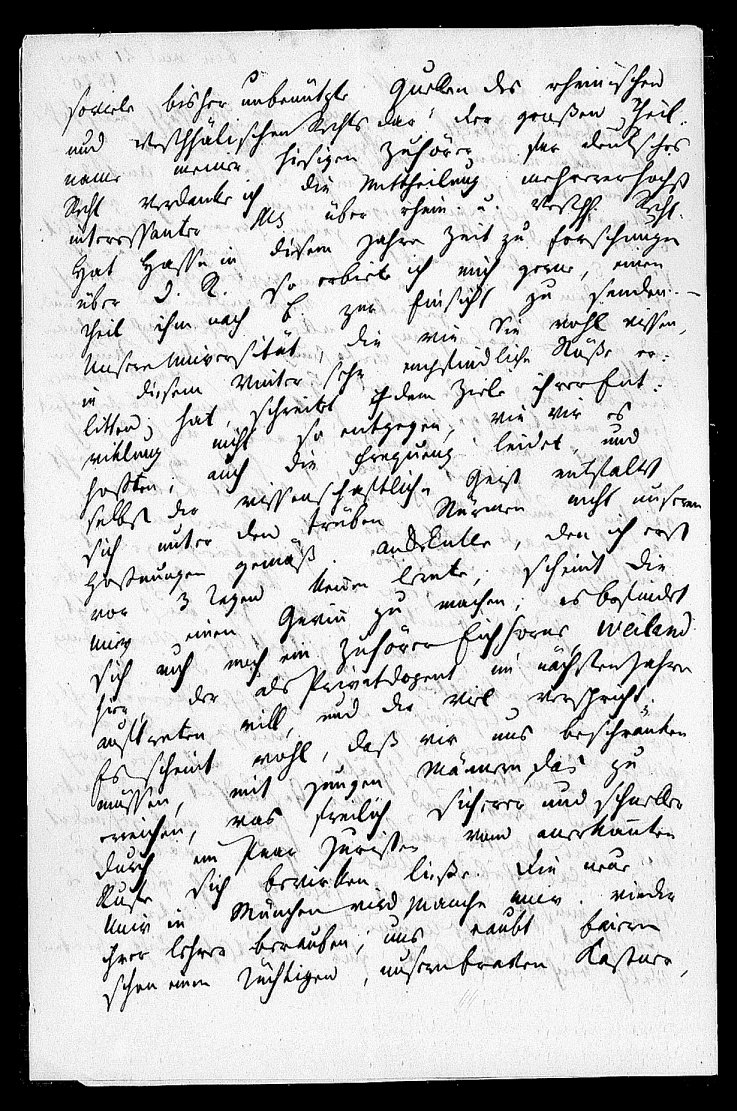 soviele bisher unbenützte Quellen des rheinischen
und westphälischen Rechts dar! der großen Theil-
name meiner hiesigen Zuhörer für deutsches
Recht verdanke ich die Mittheilung mehrerer höchst
interessanter Mss über rhein. u. westph. Recht.
Hat Hasse in diesem Jahre Zeit zu Forschungen
über D. R. so erbiete ich mich gerne, einen
Theil ihm nach B. zur Einsicht zu senden. —
Unsere Universität, die wie Sie wohl wissen,
in diesem Winter sehr empfindliche Stöße er-
litten hat, schreitet dem Ziele ihrer Ent-
wiklung nicht so entgegen, wie wir es
hofften; auch die Frequenz leidet, und
selbst der wissenschaftliche Geist entfaltet
sich unter den trüben Stürmen nicht unseren
Hoffnungen gemäß.
vor 3 Tagen kennen lernte, scheint die
Univ einen Gewinn zu machen; es befindet
sich auch noch ein Zuhörer Eichhorns, Weiland
hier, der als Privatdozent im nächsten Jahre
auftreten will, und der viel verspricht.
Es scheint wohl, daß wir uns beschränken
müssen, mit jungen Männern das zu
erreichen, was freilich sicherer und schneller
durch ein Paar Juristen vom anerkannten
Rufe sich bewirken ließe. Die neue
Univ in München wird manche Univ. wieder
ihrer Lehrer berauben; uns raubt Baiern
schon einen tüchtigen, unsern braven Kastner,